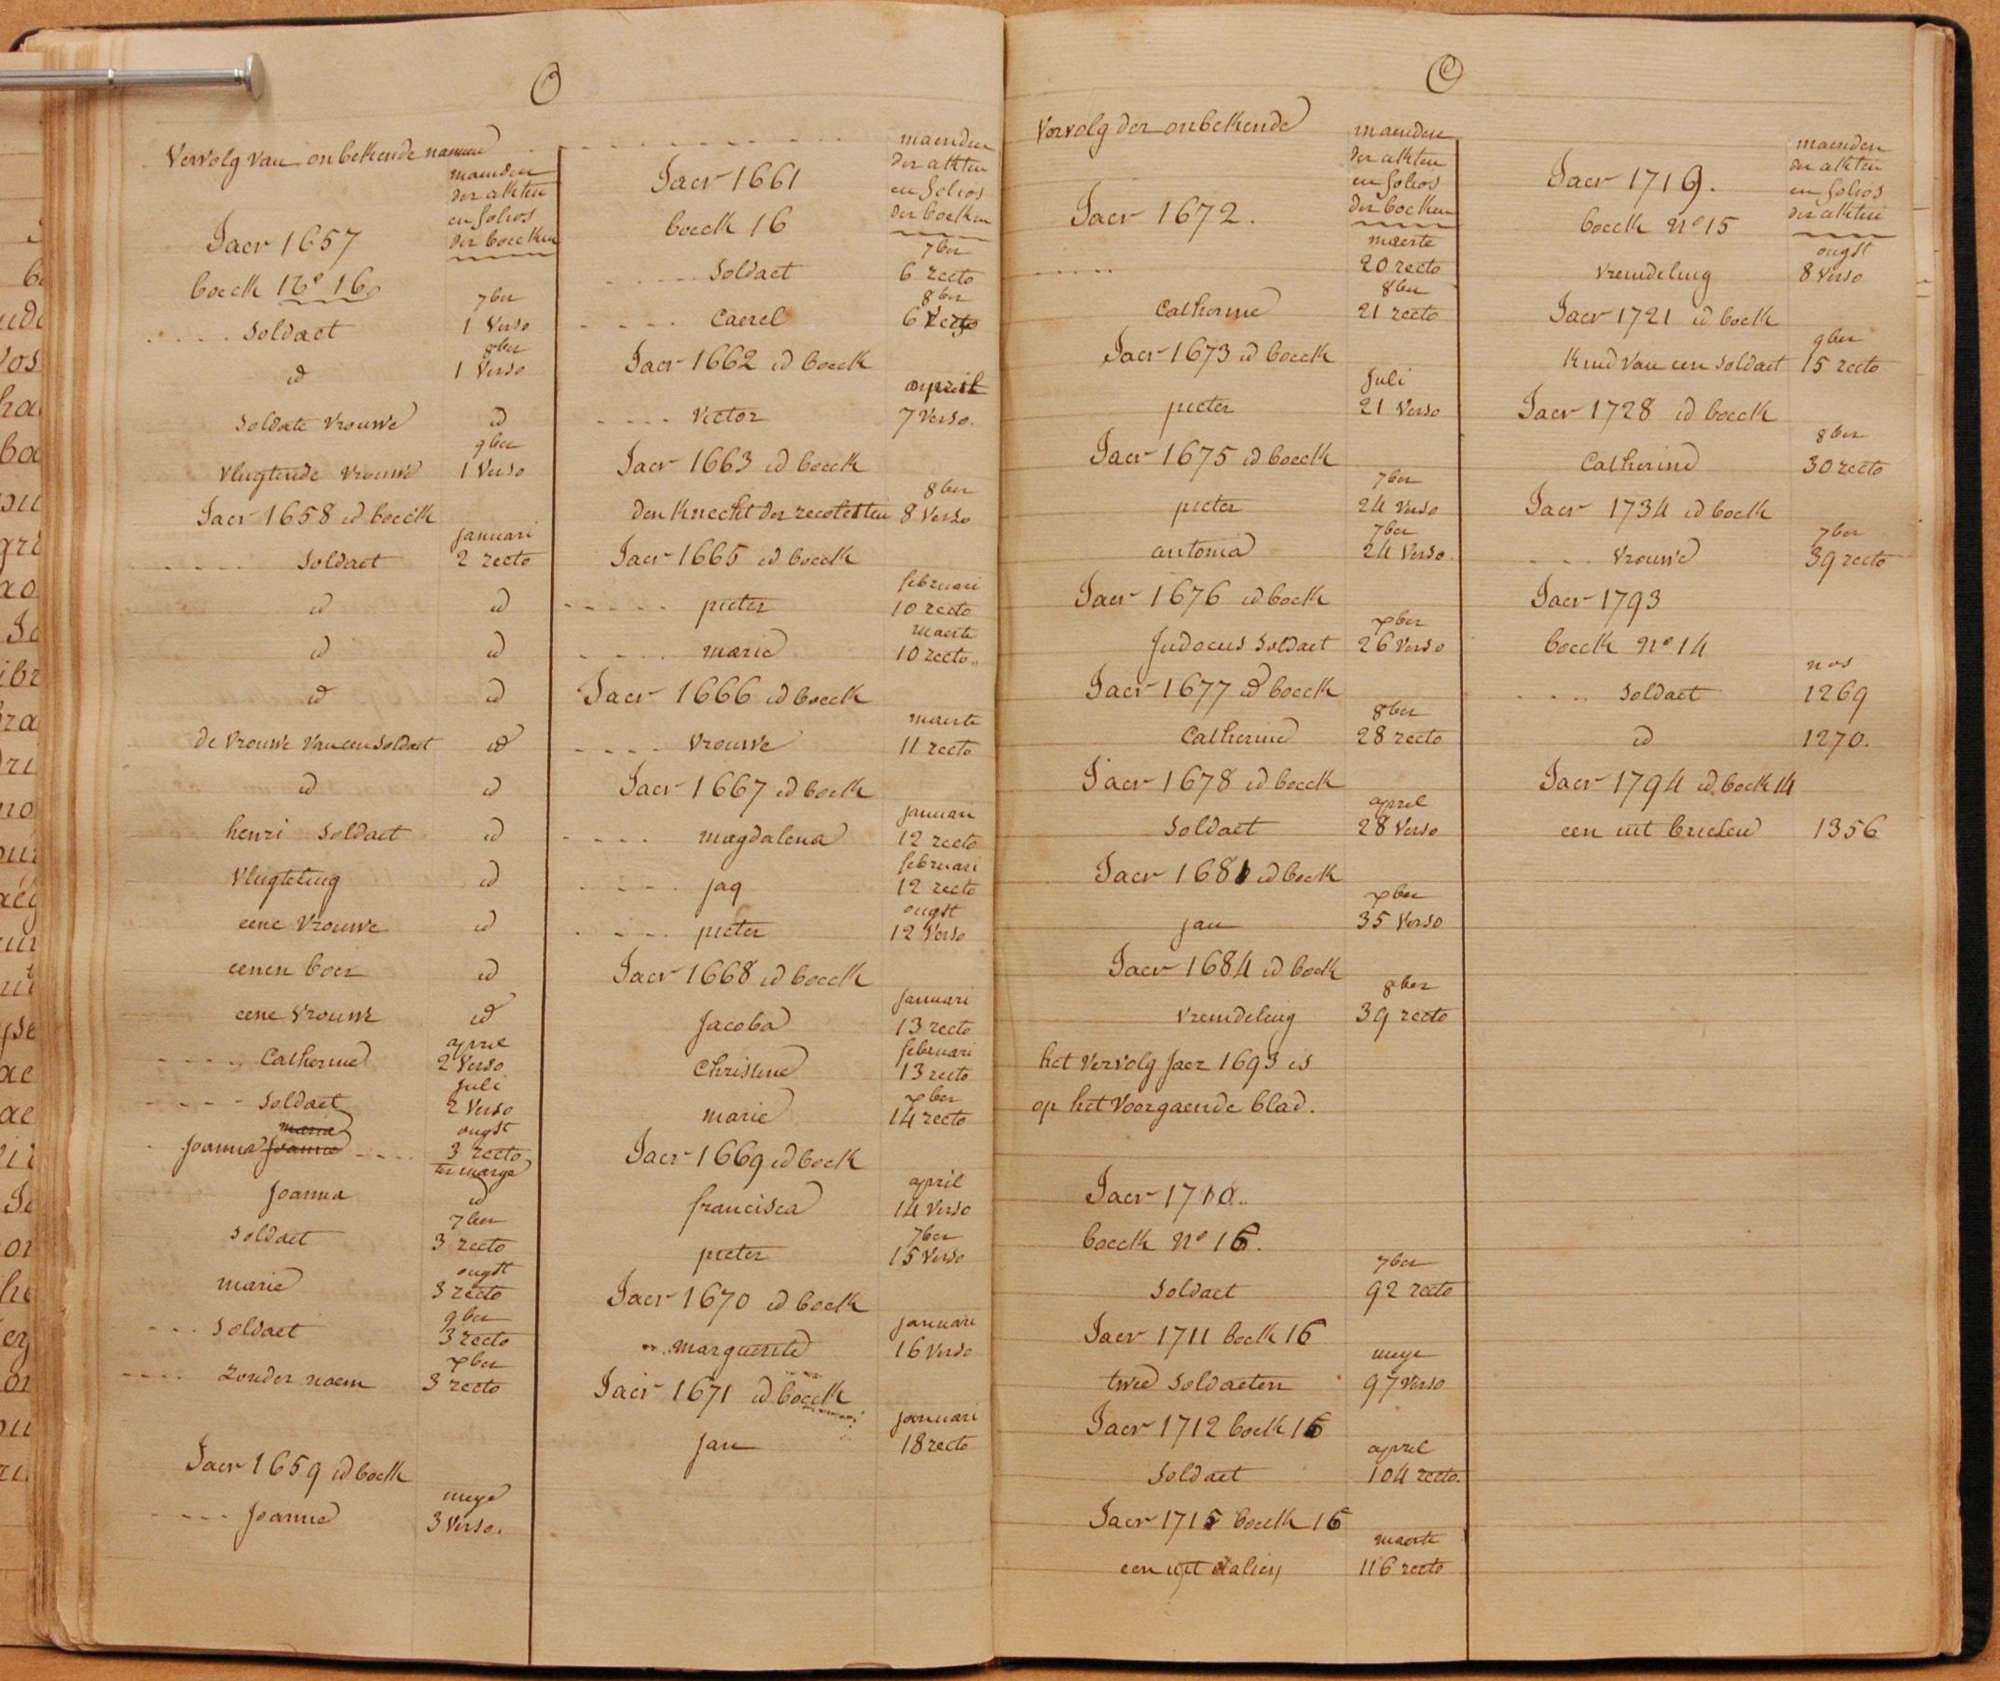 O
Vervolg van onbekende namen
maenden
der akten
en folios
der boecken
Jaer 1657
boeck No 16
7ber
..... soldaet 1 verso
8ber
id 1 verso
soldate vrouwe id
9ber
vlugtende vrouwe 1 verso
Jaer 1658 id boeck
januari
..... soldaet 2 recto
id id
id id
id id
de vrouwe van een soldaet id
id id
henri soldaet id
vlugteling id
eene vrouwe id
eenen boer id
eene vrouwe id
april
.... Catherine 2 verso
Juli
.... soldaet 2 verso
ougst
Joanna .... 3 recto
ter marge
Joanna id
7ber
soldaet 3 recto
ougst
marie 3 recto
9ber
... soldaet 3 recto
xber
.... zonder naem 3 recto
Jaer 1659 id boeck
meye
.... Joanne 3 verso.
maenden
der akten
en folios
der boecken
Jaer 1661
boeck 16
7ber
..... soldaet 6 recto
8ber
.... Caerel 6 recto
Jaer 1662 id boeck
april
.... victor 7 verso.
Jaer 1663 id boeck
8ber
den knecht der recolecten 8 verso
Jaer 1665 id boeck
februari
..... pieter 10 recto
maerte
.... marie 10 recto..
Jaer 1666 id boeck
maerte
.... vrouwe 11 recto
Jaer 1667 id boeck
januari
.... magdalena 12 recto
februari
.... jaq 12 recto
ougst
.... pieter 12 verso
Jaer 1668 id boeck
januari
Jacoba 13 recto
februari
Christine 13 recto
xber
marie 14 recto
Jaer 1669 id boeck
april
francisca 14 verso
7ber
pieter 15 verso
Jaer 1670 id boeck
januari
.. marguerite 16 verso
Jaer 1671 id boeck
januari
Jan 18 recto
O
Vervolg der onbekende
maenden
der akten
en folios
der boecken
Jaer 1672.
maerte
..... 20 recto
8ber
Catherine 21 recto
Jaer 1673 id boeck
Juli
pieter 21 verso
Jaer 1675 id boeck
7ber
pieter 24 verso
7ber
antonia 24 verso.
Jaer 1676 id boeck
xber
Judocus soldaet 26 verso
Jaer 1677 id boeck
8ber
Catherine 28 recto
Jaer 1678 id boeck
april
soldaet 28 verso
Jaer 1681 id boeck
xber
jan 35 verso
Jaer 1684 id boek
8ber
vremdeling 39 recto
het vervolg jaer 1693 is
op het voorgaende blad.
Jaer 1710..
boeck No 16.
7ber
soldaet 92 recto
Jaer 1711 boek 16
meye
twee soldaeten 97 verso
Jaer 1712 boek 16
april
soldaet 104 recto.
Jaer 1715 boeck 16
maerte
een uyt italien 116 recto
maenden
der akten
en folios
der akten
Jaer 1719.
boeck No 15
ougst
vremdeling 8 verso
Jaer 1721 id boek
9ber
kind van een soldaet 15 recto
Jaer 1728 id boeck
8ber
Catherine 30 recto
Jaer 1734 id boek
7ber
.... vrouwe 39 recto
Jaer 1793
boeck No 14
nos
.... soldaet 1269
id 1270.
Jaer 1794 id boek 14
een uit 1356